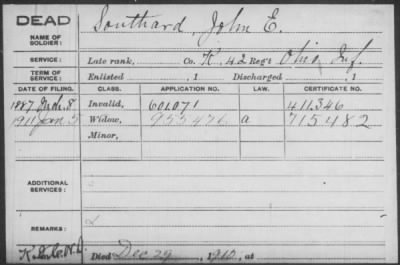 DEAD
Southard, John E.
NAME OF SOLDIER:
SERVICE: Late rank, Co. K, 42 Reg't Ohio Inf.
TERM OF SERVICE: Enlisted , 1 Discharged , 1
DATE OF FILING. CLASS. APPLICATION NO. LAW. CERTIFICATE NO.
1887 8 Invalid, 601.071 411.346
1911 Jan. 5 Widow, 955476 a 715482
Minor,
ADDITIONAL SERVICES:
REMARKS:
Died Dec 29, 1910, at